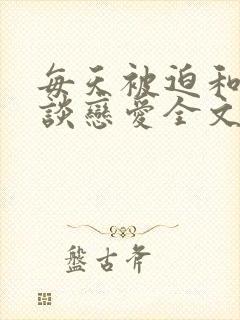 每天被迫和
談戀愛全文
盤古斧